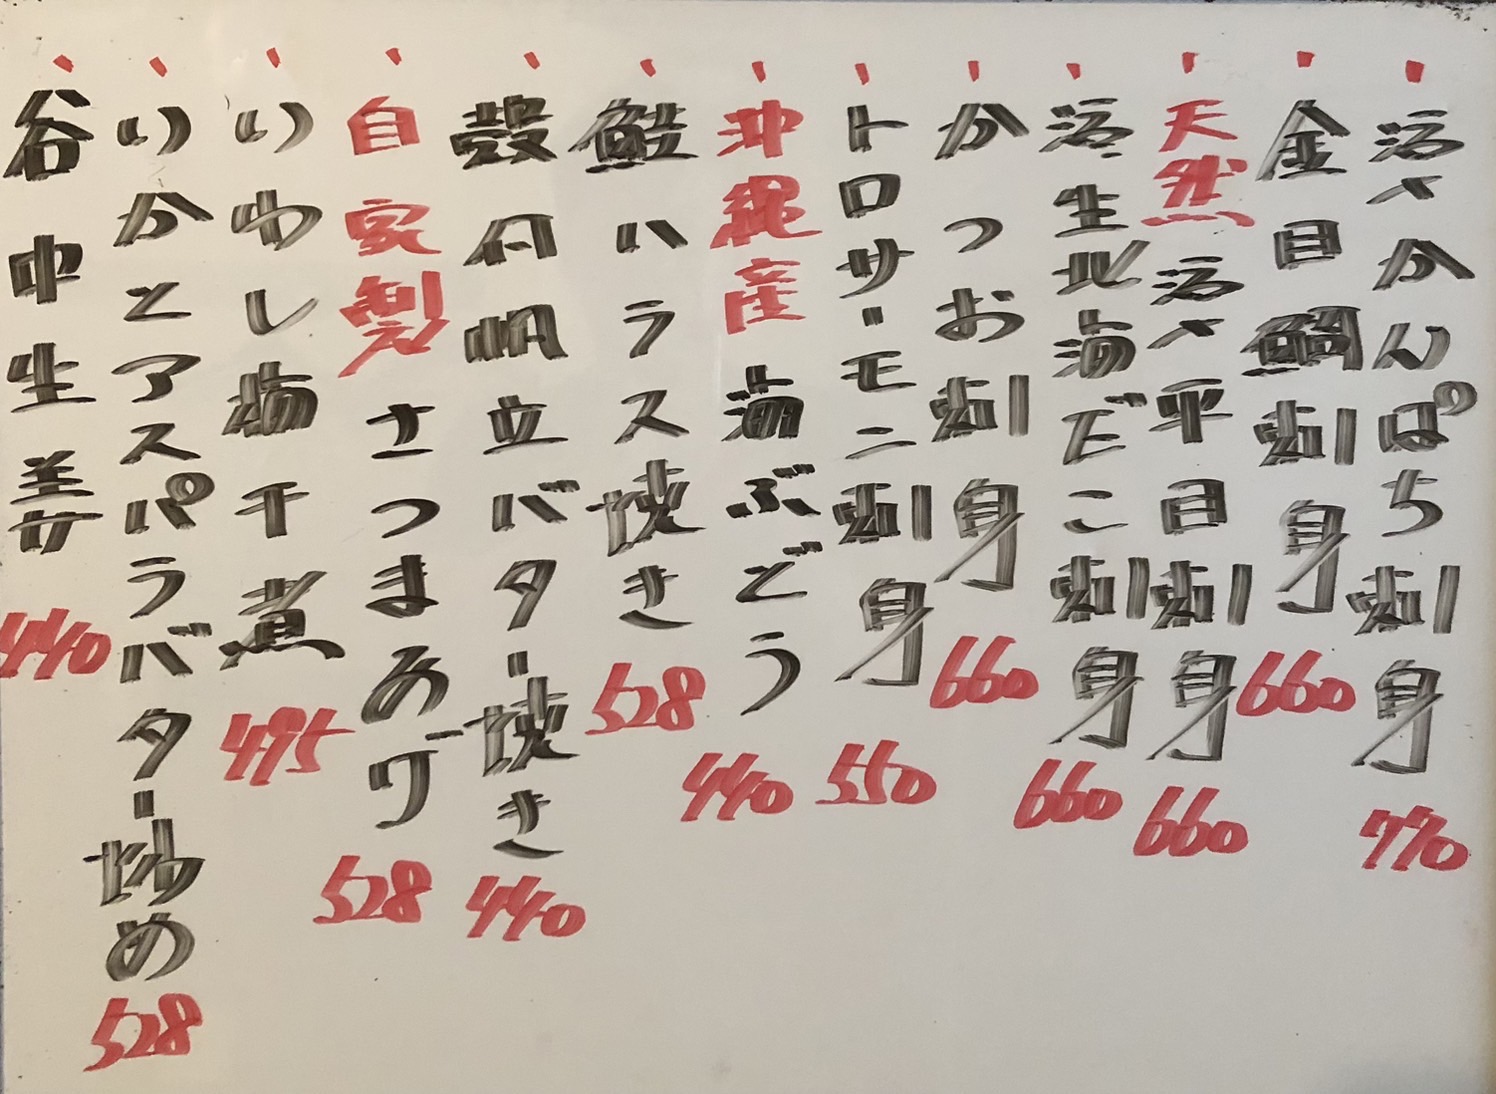 活〆かんぱち刺身 770
金目鯛刺身 660
天然活〆平目刺身 660
活生北海だこ刺身 660
かつお刺身 660
トロサーモン刺身 550
沖縄産海ぶどう 440
鮭ハラス焼き 528
殻付帆立バター焼き 440
自家製さつまあげ 528
いわし梅干煮 495
いかとアスパラバター炒め 528
谷中生姜 440